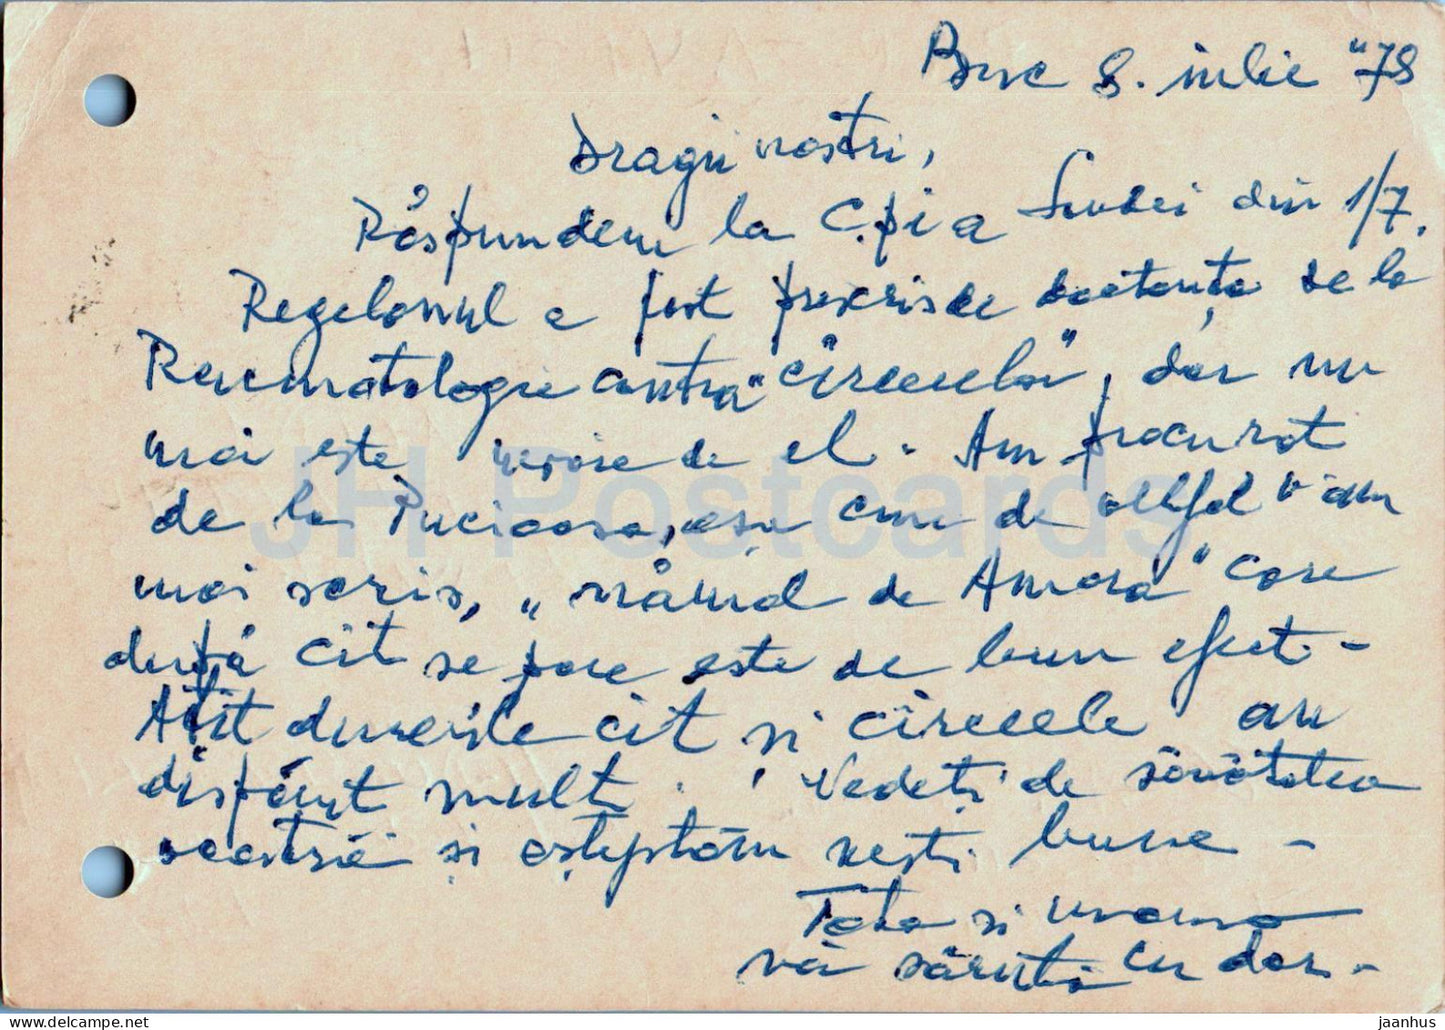 Buc 8. iulie "78
Dragii noștri,
Răspundem la C.p. a Sandei din 1/7.
a fost prescris de doctorița de la
Reumatologie contra "cârceelor", dar nu
mai este nevoie de el. Am procurat
de la Pucioasa, așa cum de altfel v'am
mai scris, "nămol de Amara" care
după cît se pare este de bun efect -
Atît durerile cît și cârceele au
dispărut mult. Vedeți de sănătatea
voastră și așteptăm vești bune -
Tata și mama
vă sărută cu dor. -
JH Postcards
jaanhus ~ www.delcampe.net